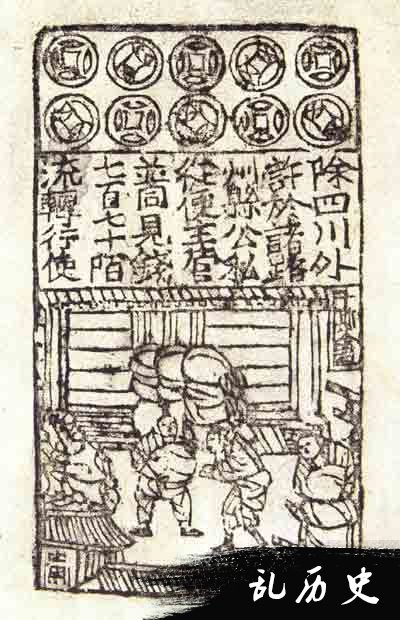 除四川外
許於諸路
州縣公私
從便主管
並同見錢
七百七十陌
流轉行使
乱历史